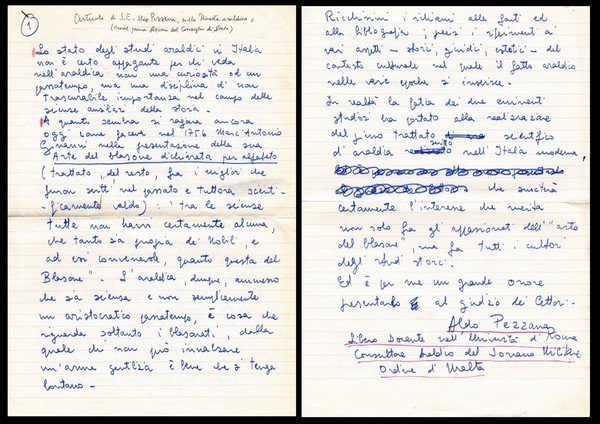 1
Articolo di S.E. Aldo Pezzana, sulla "Rivista araldica"
(Presid. prima Sezione del Consiglio di Stato)
Lo stato degli studi araldici in Italia
non è certo appagante per chi veda
nell'araldica non una curiosità od un
passatempo, ma una disciplina di non
trascurabile importanza nel campo delle
scienze ausiliari della storia.
A quanto sembra si ragiona ancora
oggi come faceva nel 1756 Marc'Antonio
Ginanni nella presentazione della sua
"Arte del blasone dichiarata per alfabeto
(trattato, del resto, fra i migliori che
furon scritti nel passato e tuttora scienti-
ficamente valido): "tra le scienze
tutte non havvi certamente alcuna,
che tanto sia propria de' Nobili, e
ad essi convenevole, quanto questa del
Blasone". L'araldica, dunque, ammesso
che sia scienza e non semplicemente
un aristocratico passatempo, è cosa che
riguarda soltanto i blasonati, dalla
quale chi non può innalzare
un'arma gentilizia è bene che si tenga
lontano -
Ricchissimi i richiami alle fonti ed
alla bibliografia; precisi i riferimenti ai
vari aspetti - storici, giuridici, estetici - del
contesto culturale nel quale il fatto araldico
nelle varie epoche si inserisce.
In realtà la fatica dei due eminenti
studiosi ha portato alla realizzazione
del primo trattato scientifico
di araldica scritto nell'Italia moderna,
che susciterà
certamente l'interesse che merita
non solo fra gli appassionati dell'"arte
del blasone", ma fra tutti i cultori
degli studi storici.
Ed è per me un grande onore
presentarlo al giudizio dei lettori.
Aldo Pezzana
Libero Docente nell'Università di Roma
Consultore araldico del Sovrano Militare
Ordine di Malta